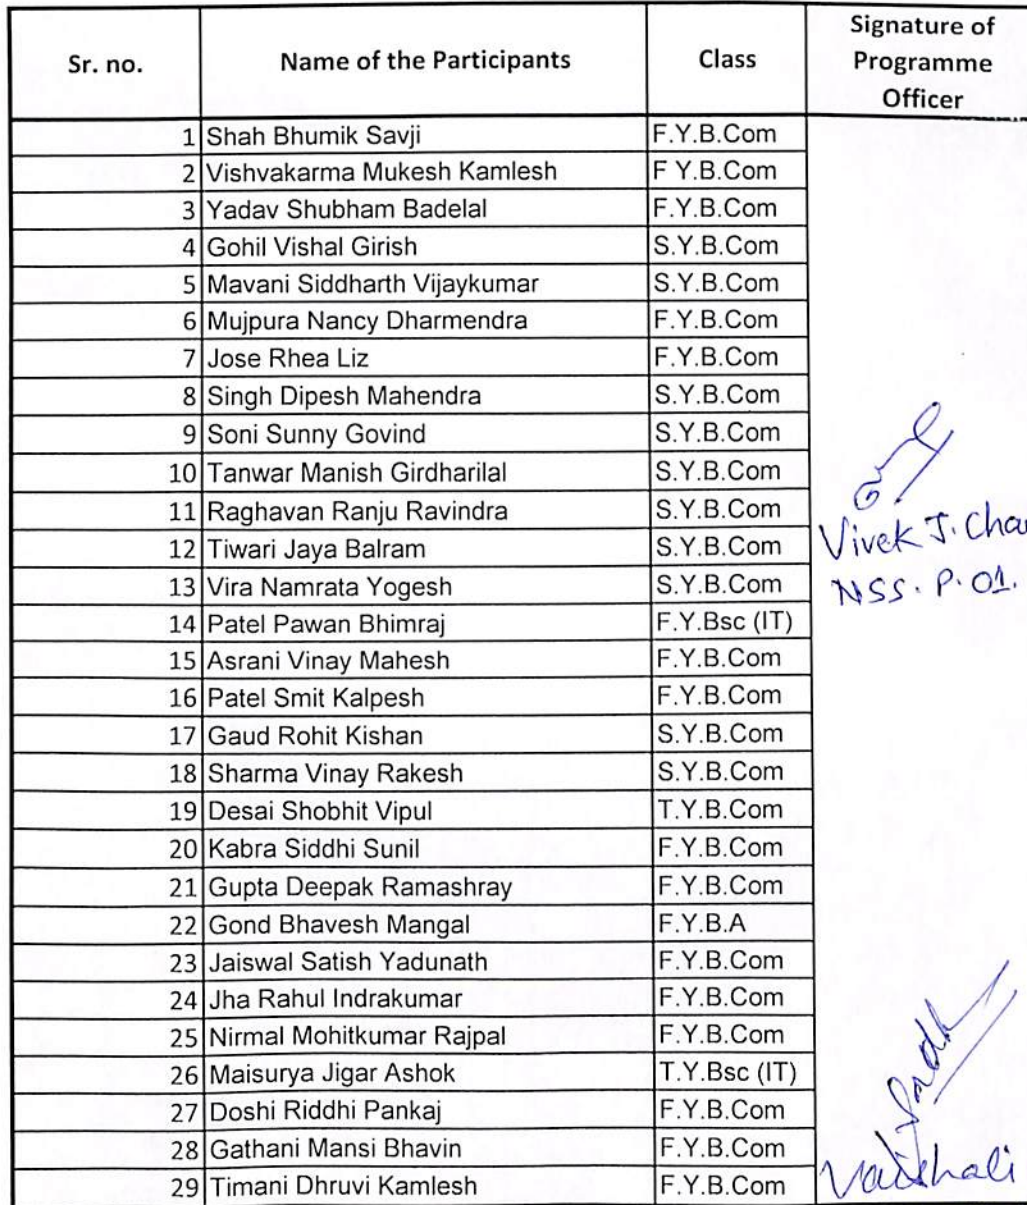 Sr. no. Name of the Participants Class Signature of Programme Officer
1 Shah Bhumik Savji F.Y.B.Com
2 Vishvakarma Mukesh Kamlesh F Y.B.Com
3 Yadav Shubham Badelal F.Y.B.Com
4 Gohil Vishal Girish S.Y.B.Com
5 Mavani Siddharth Vijaykumar S.Y.B.Com
6 Mujpura Nancy Dharmendra F.Y.B.Com
7 Jose Rhea Liz F.Y.B.Com
8 Singh Dipesh Mahendra S.Y.B.Com
9 Soni Sunny Govind S.Y.B.Com
10 Tanwar Manish Girdharilal S.Y.B.Com
11 Raghavan Ranju Ravindra S.Y.B.Com
12 Tiwari Jaya Balram S.Y.B.Com Vivek J. Chau
13 Vira Namrata Yogesh S.Y.B.Com NSS. P. O1.
14 Patel Pawan Bhimraj F.Y.Bsc (IT)
15 Asrani Vinay Mahesh F.Y.B.Com
16 Patel Smit Kalpesh F.Y.B.Com
17 Gaud Rohit Kishan S.Y.B.Com
18 Sharma Vinay Rakesh S.Y.B.Com
19 Desai Shobhit Vipul T.Y.B.Com
20 Kabra Siddhi Sunil F.Y.B.Com
21 Gupta Deepak Ramashray F.Y.B.Com
22 Gond Bhavesh Mangal F.Y.B.A
23 Jaiswal Satish Yadunath F.Y.B.Com
24 Jha Rahul Indrakumar F.Y.B.Com
25 Nirmal Mohitkumar Rajpal F.Y.B.Com
26 Maisurya Jigar Ashok T.Y.Bsc (IT)
27 Doshi Riddhi Pankaj F.Y.B.Com
28 Gathani Mansi Bhavin F.Y.B.Com
29 Timani Dhruvi Kamlesh F.Y.B.Com Vaishali